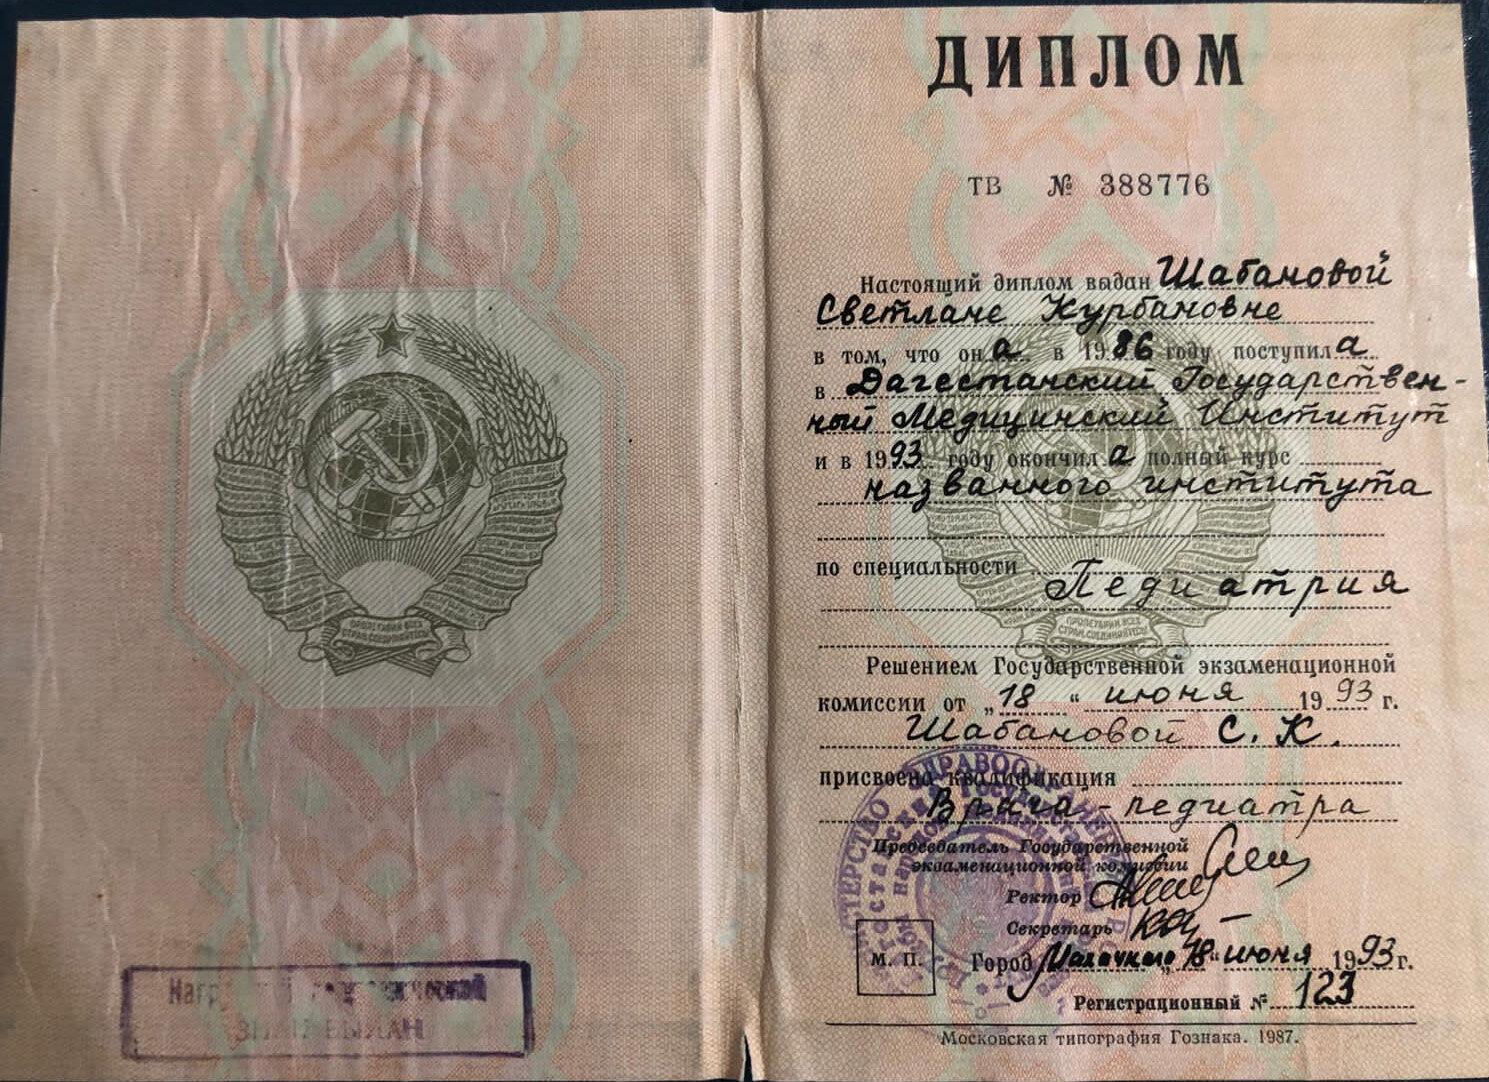 ПРОЛЕТАРИИ ВСЕХ
СТРАН, СОЕДИНЯЙТЕСЬ!
ЗНАК ВЫДАН
ДИПЛОМ
ТВ № 388776
Настоящий диплом выдан Шабановой
Светлане Курбановне
в том, что она в 1986 году поступила
в Дагестанский Государствен-
ный Медицинский Институт
и в 1993 году окончила полный курс
названного института
по специальности
Педиатрия
ПРОЛЕТАРИИ ВСЕХ
СТРАН, СОЕДИНЯЙТЕСЬ!
Решением Государственной экзаменационной
комиссии от „18“ июня 1993 г.
Шабановой С. К.
присвоена квалификация
Врача-педиатра
Председатель Государственной
экзаменационной комиссии
Ректор
Секретарь
М. П.
Город Махачкала „18“ июня 1993 г.
Регистрационный № 123
Московская типография Гознака. 1987.